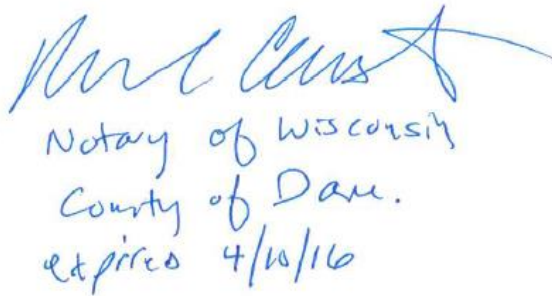 Notary of Wisconsin
County of Dane.
expires 4/10/16